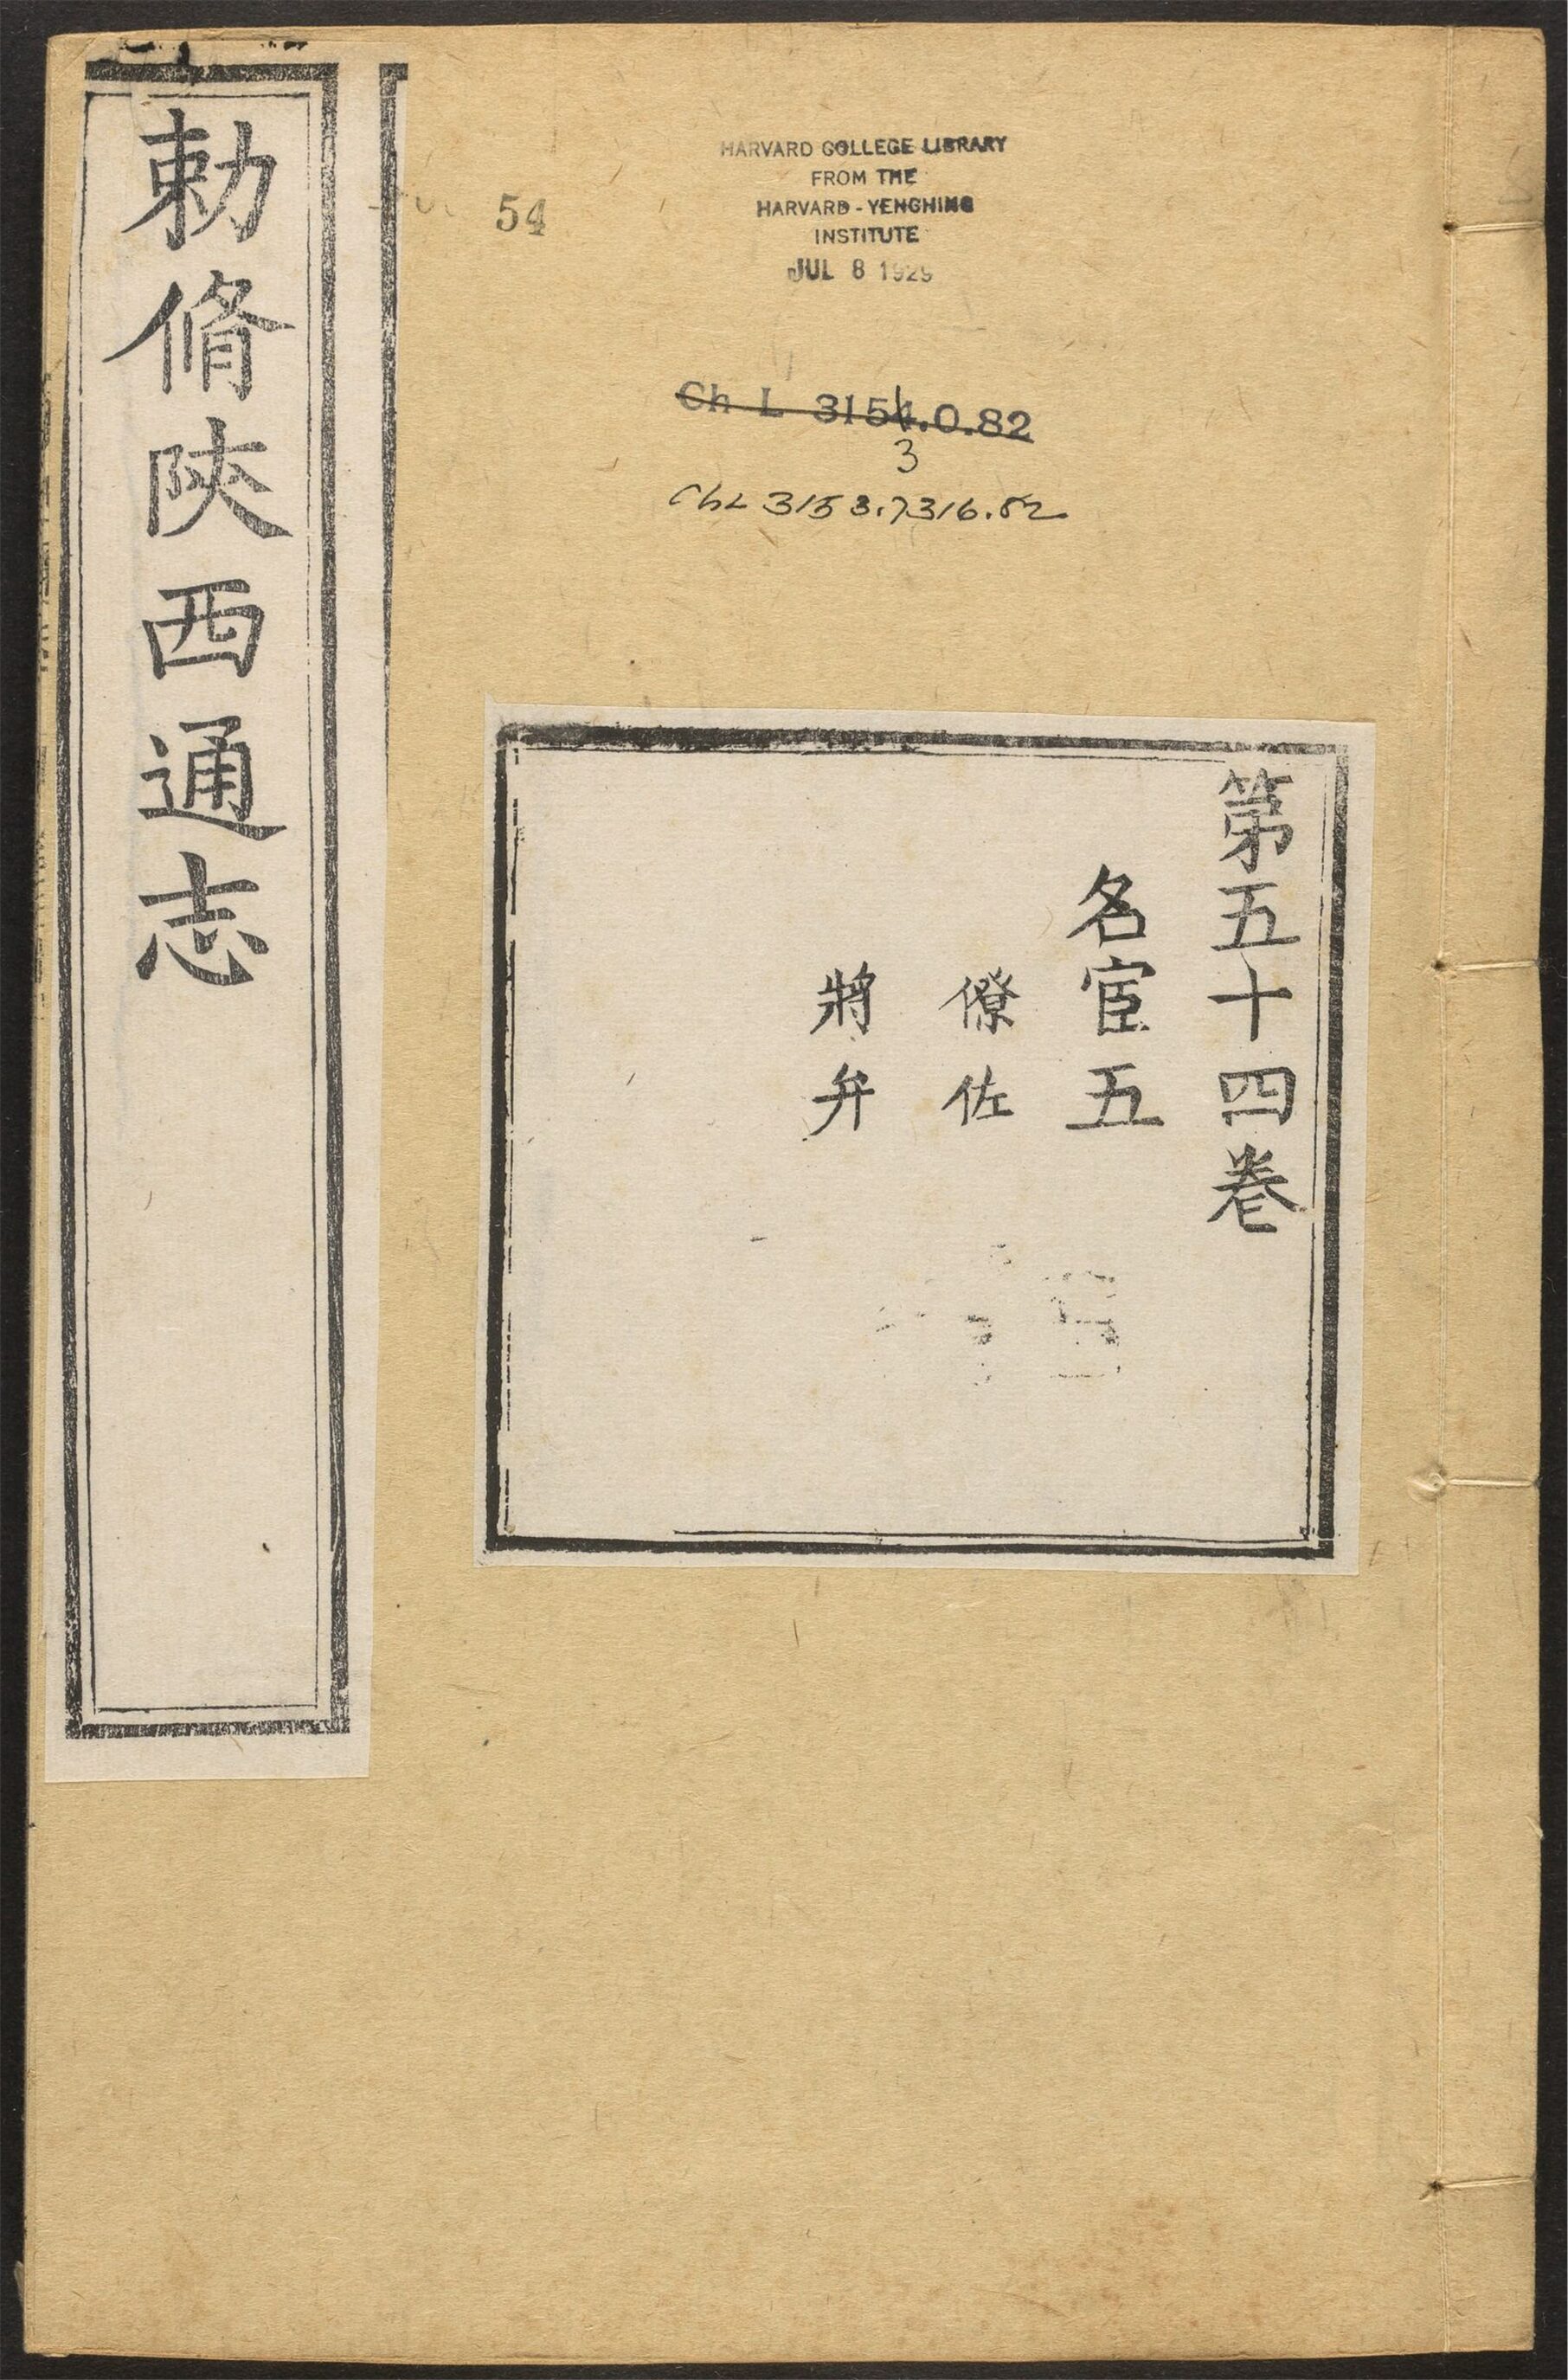 勅脩陝西通志
54
HARVARD COLLEGE LIBRARY
FROM THE
HARVARD-YENCHING
INSTITUTE
JUL 8 1929
Ch L 3154.0.82
3
ChL 3153.7316.82
第五十四卷
名宦五
僚佐
將弁